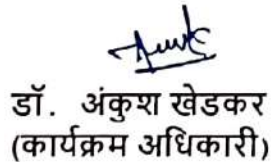 डॉ. अंकुश खेडकर
(कार्यक्रम अधिकारी)